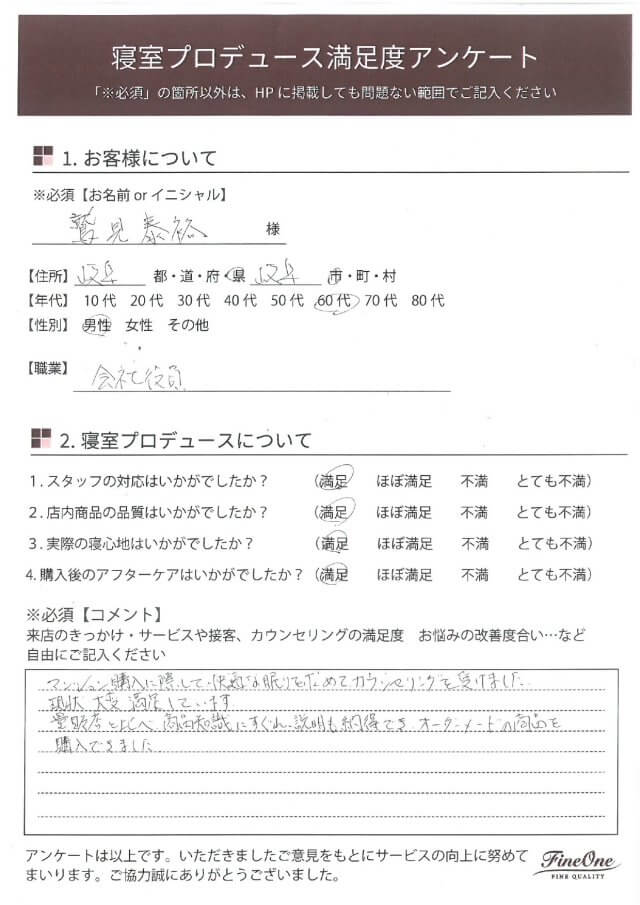 寝室プロデュース満足度アンケート
「※必須」の箇所以外は、HPに掲載しても問題ない範囲でご記入ください
1. お客様について
※必須【お名前 or イニシャル】
鷲見泰裕 様
【住所】 岐阜 都・道・府・県 岐阜 市・町・村
【年代】 10代 20代 30代 40代 50代 60代 70代 80代
【性別】 男性 女性 その他
【職業】 会社役員
2. 寝室プロデュースについて
1. スタッフの対応はいかがでしたか？ （満足 ほぼ満足 不満 とても不満）
2. 店内商品の品質はいかがでしたか？ （満足 ほぼ満足 不満 とても不満）
3. 実際の寝心地はいかがでしたか？ （満足 ほぼ満足 不満 とても不満）
4. 購入後のアフターケアはいかがでしたか？ （満足 ほぼ満足 不満 とても不満）
※必須【コメント】
来店のきっかけ・サービスや接客、カウンセリングの満足度 お悩みの改善度合い…など
自由にご記入ください
マンション購入に際して、快適な眠りを求めてカウンセリングを受けました
現状 大変満足しています
量販店と比べ 商品知識にすぐれ、説明も納得でき オーダーメードの商品を
購入できました
アンケートは以上です。いただきましたご意見をもとにサービスの向上に努めて
まいります。ご協力誠にありがとうございました。
FineOne
FINE QUALITY